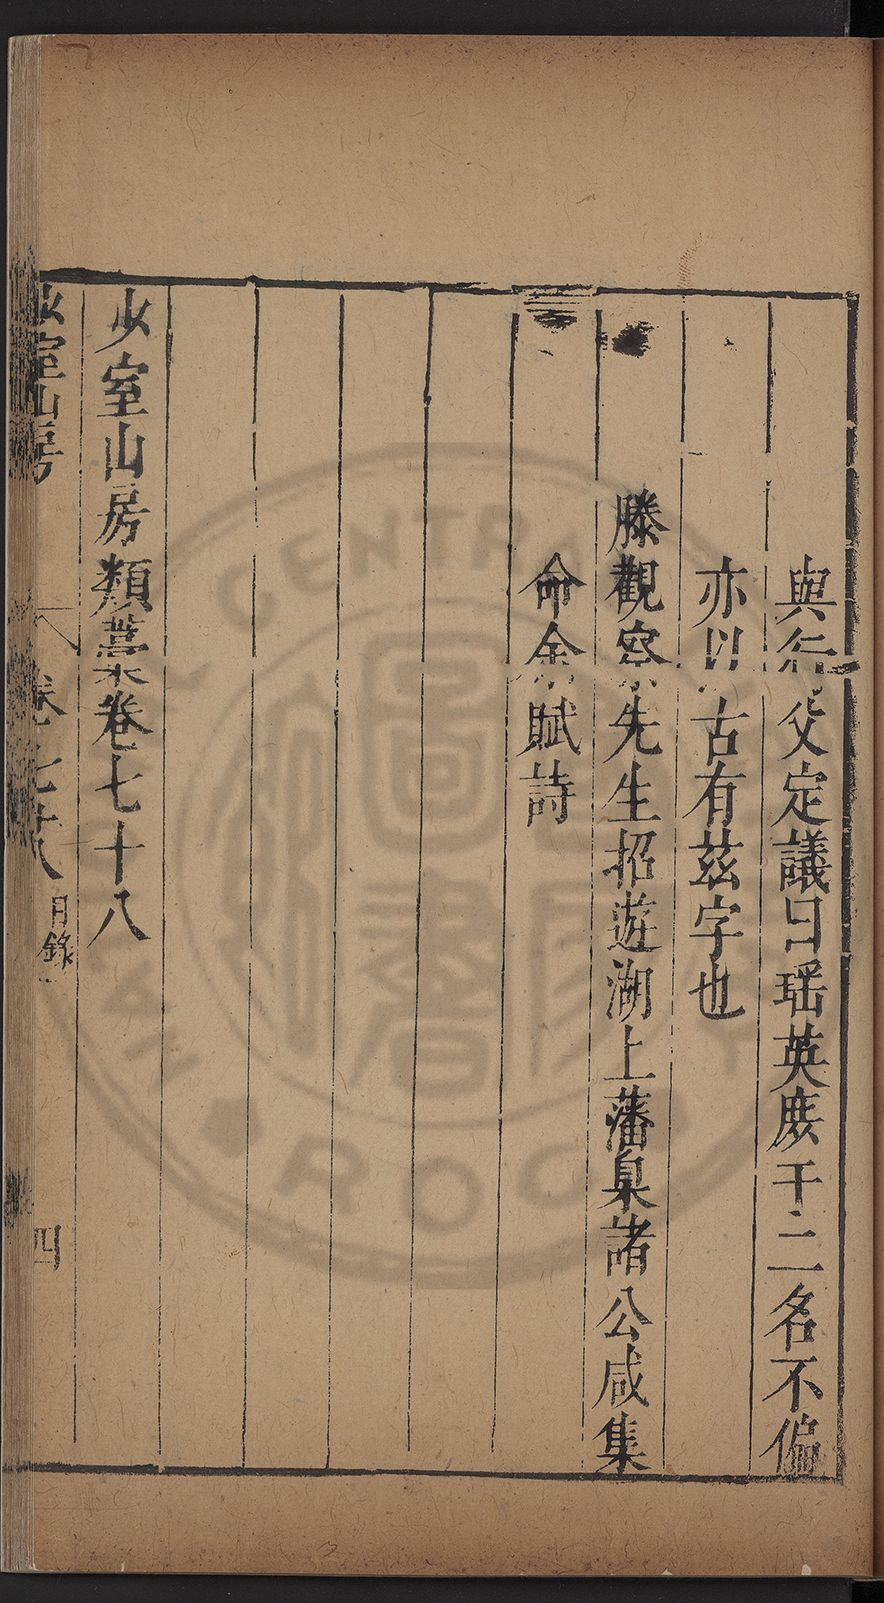 與行父定議曰瑶英庶于二名不偏
亦以古有茲字也
滕觀察先生招遊湖上藩臬諸公咸集
命余賦詩
少室山房類藁卷七十八
少室山房 卷七十八 目錄 四
CENTRAL